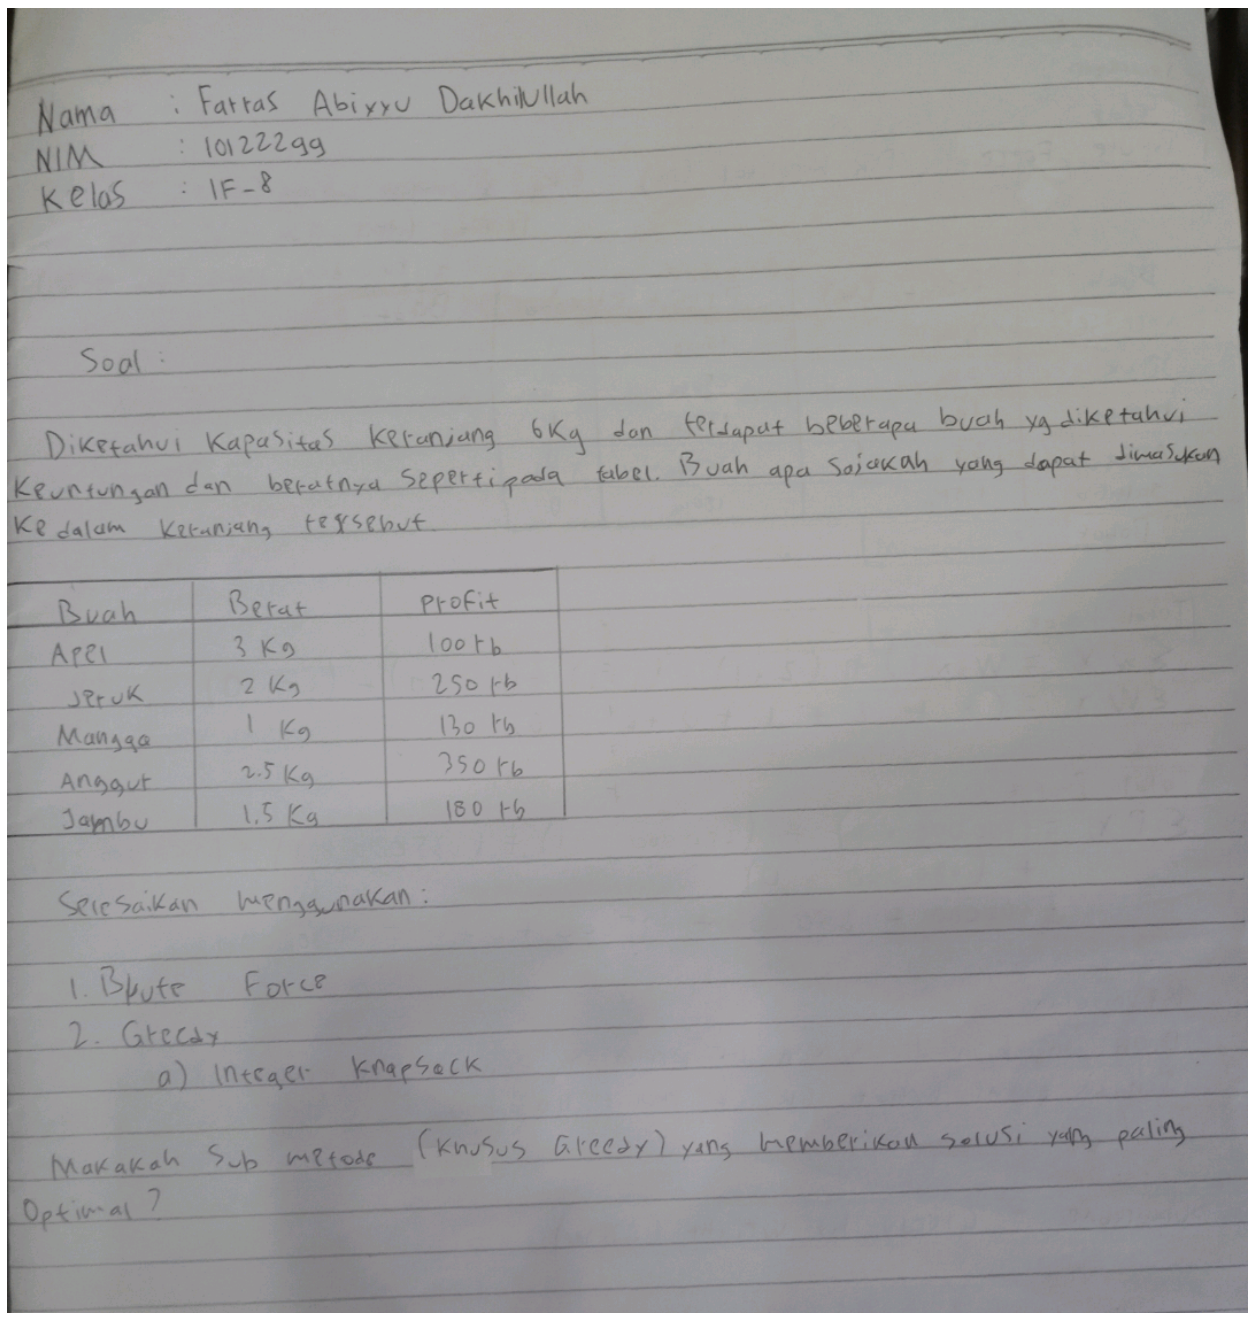 Nama : Farras Abiyyu Dakhilullah
NIM : 10122299
Kelas : IF-8
Soal :
Diketahui Kapasitas Keranjang 6Kg dan terdapat beberapa buah yg diketahui
Keuntungan dan beratnya seperti pada tabel. Buah apa sajakah yang dapat dimasukan
Ke dalam Keranjang tersebut
Buah Berat Profit
Apel 3 Kg 100 rb
Jeruk 2 Kg 250 rb
Mangga 1 Kg 130 rb
Anggur 2.5 Kg 350 rb
Jambu 1.5 Kg 180 rb
Selesaikan menggunakan :
1. Brute Force
2. Greedy
a) Integer Knapsack
Manakah Sub metode (Khusus Greedy) yang memberikan solusi yang paling
Optimal ?